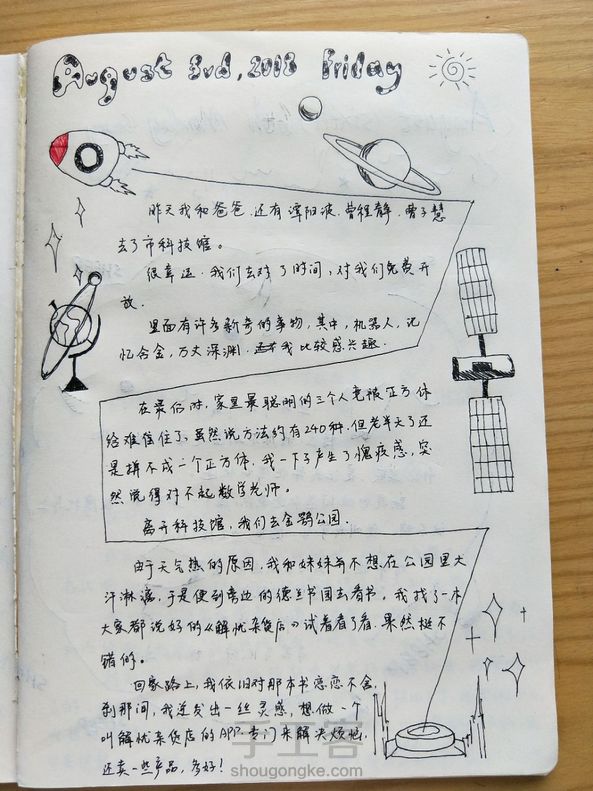 August 3rd, 2018 Friday
昨天我和爸爸.还有谭阳波.曾程静.曹子慧
去了市科技馆。
很幸运.我们去对了时间,对我们免费开
放.
里面有许多新奇的事物,其中,机器人,记
忆合金,万丈深渊.我比较感兴趣.
在最后时,家里最聪明的三个人竟被正方体
给难住了,虽然说方法约有240种,但老半天了还
是拼不成一个正方体,我一下子产生了愧疚感,突
然觉得对不起数学老师。
离开科技馆,我们去金鹗公园.
由于天气热的原因,我和妹妹并不想在公园里大
汗淋漓,于是便到旁边的德兰书园去看书,我找了一本
大家都说好的《解忧杂货店》试着看了看.果然挺不
错的。
回家路上,我依旧对那本书恋恋不舍,
刹那间,我迸发出一丝灵感,想做一个
叫解忧杂货店的APP.专门来解决烦恼,
还卖一些产品,多好!
手工客
shougongke.com